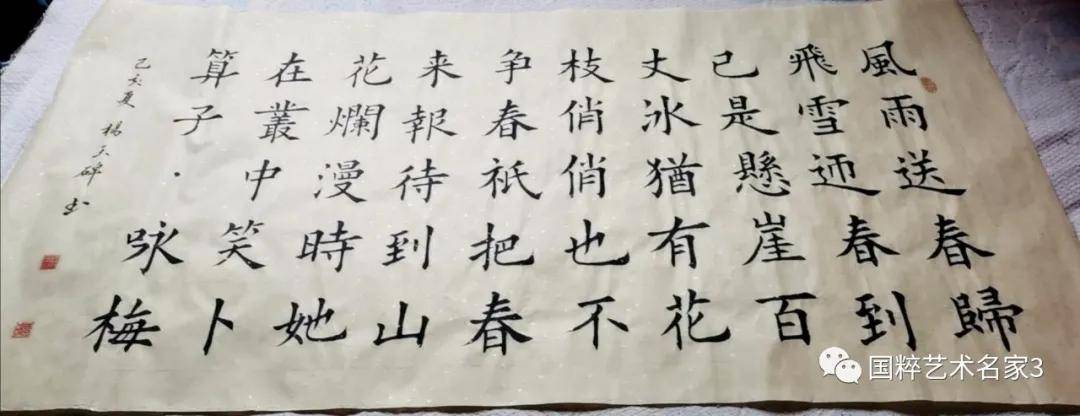 風雨送春歸
飛雪迎春到
已是懸崖百
丈冰猶有花
枝俏俏也不
争春祇把春
来報待到山
花爛漫時她
在叢中笑卜
算子·咏梅
己亥夏 楊天碑书
国粹艺术名家3